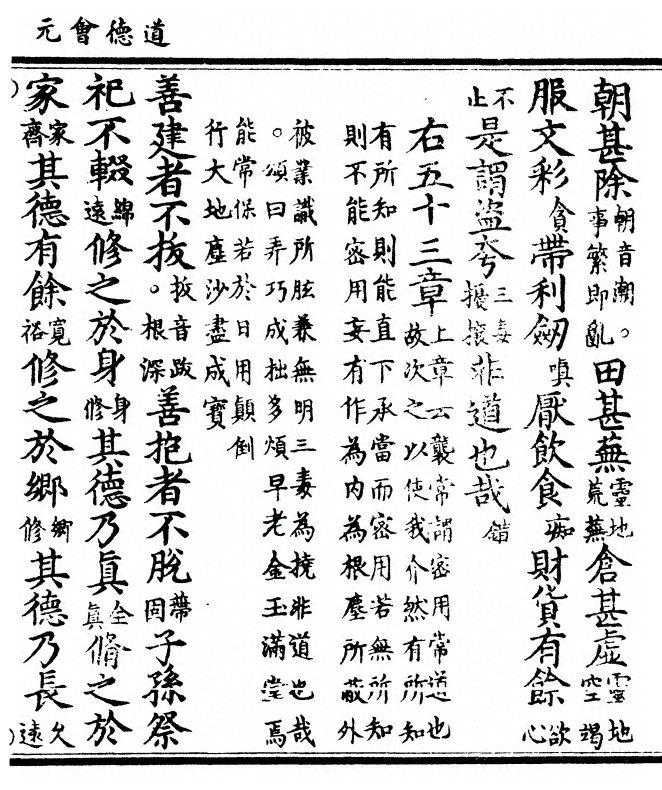 道德會元
朝甚除朝音潮。事繁即亂田甚蕪靈地荒蕪倉甚虛靈地空竭
服文彩貪帶利劒嗔厭飲食痴財貨有餘欲心
不止是謂盜夸三毒擾攘非道也哉錯
右五十三章上章云襲常謂密用常道也故次之以使我介然有所知
有所知則能直下承當而密用若無所知
則不能密用妄有作為內為根塵所蔽外
被業識所眩兼無明三毒為撓非道也哉
。頌曰弄巧成拙多煩早老金玉滿堂焉
能常保若於日用顛倒
行大地塵沙盡成寶
善建者不拔。拔音跋根深善抱者不脫蔕固子孫祭
祀不輟綿遠修之於身身修其德乃眞全眞脩之於
家家齊其德有餘寬裕修之於鄉鄉修其德乃長久遠